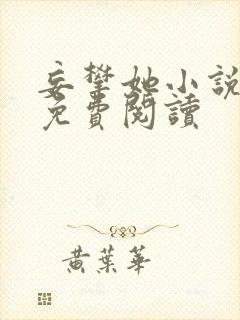 妄攀她小說
免費閱讀
黃葉華